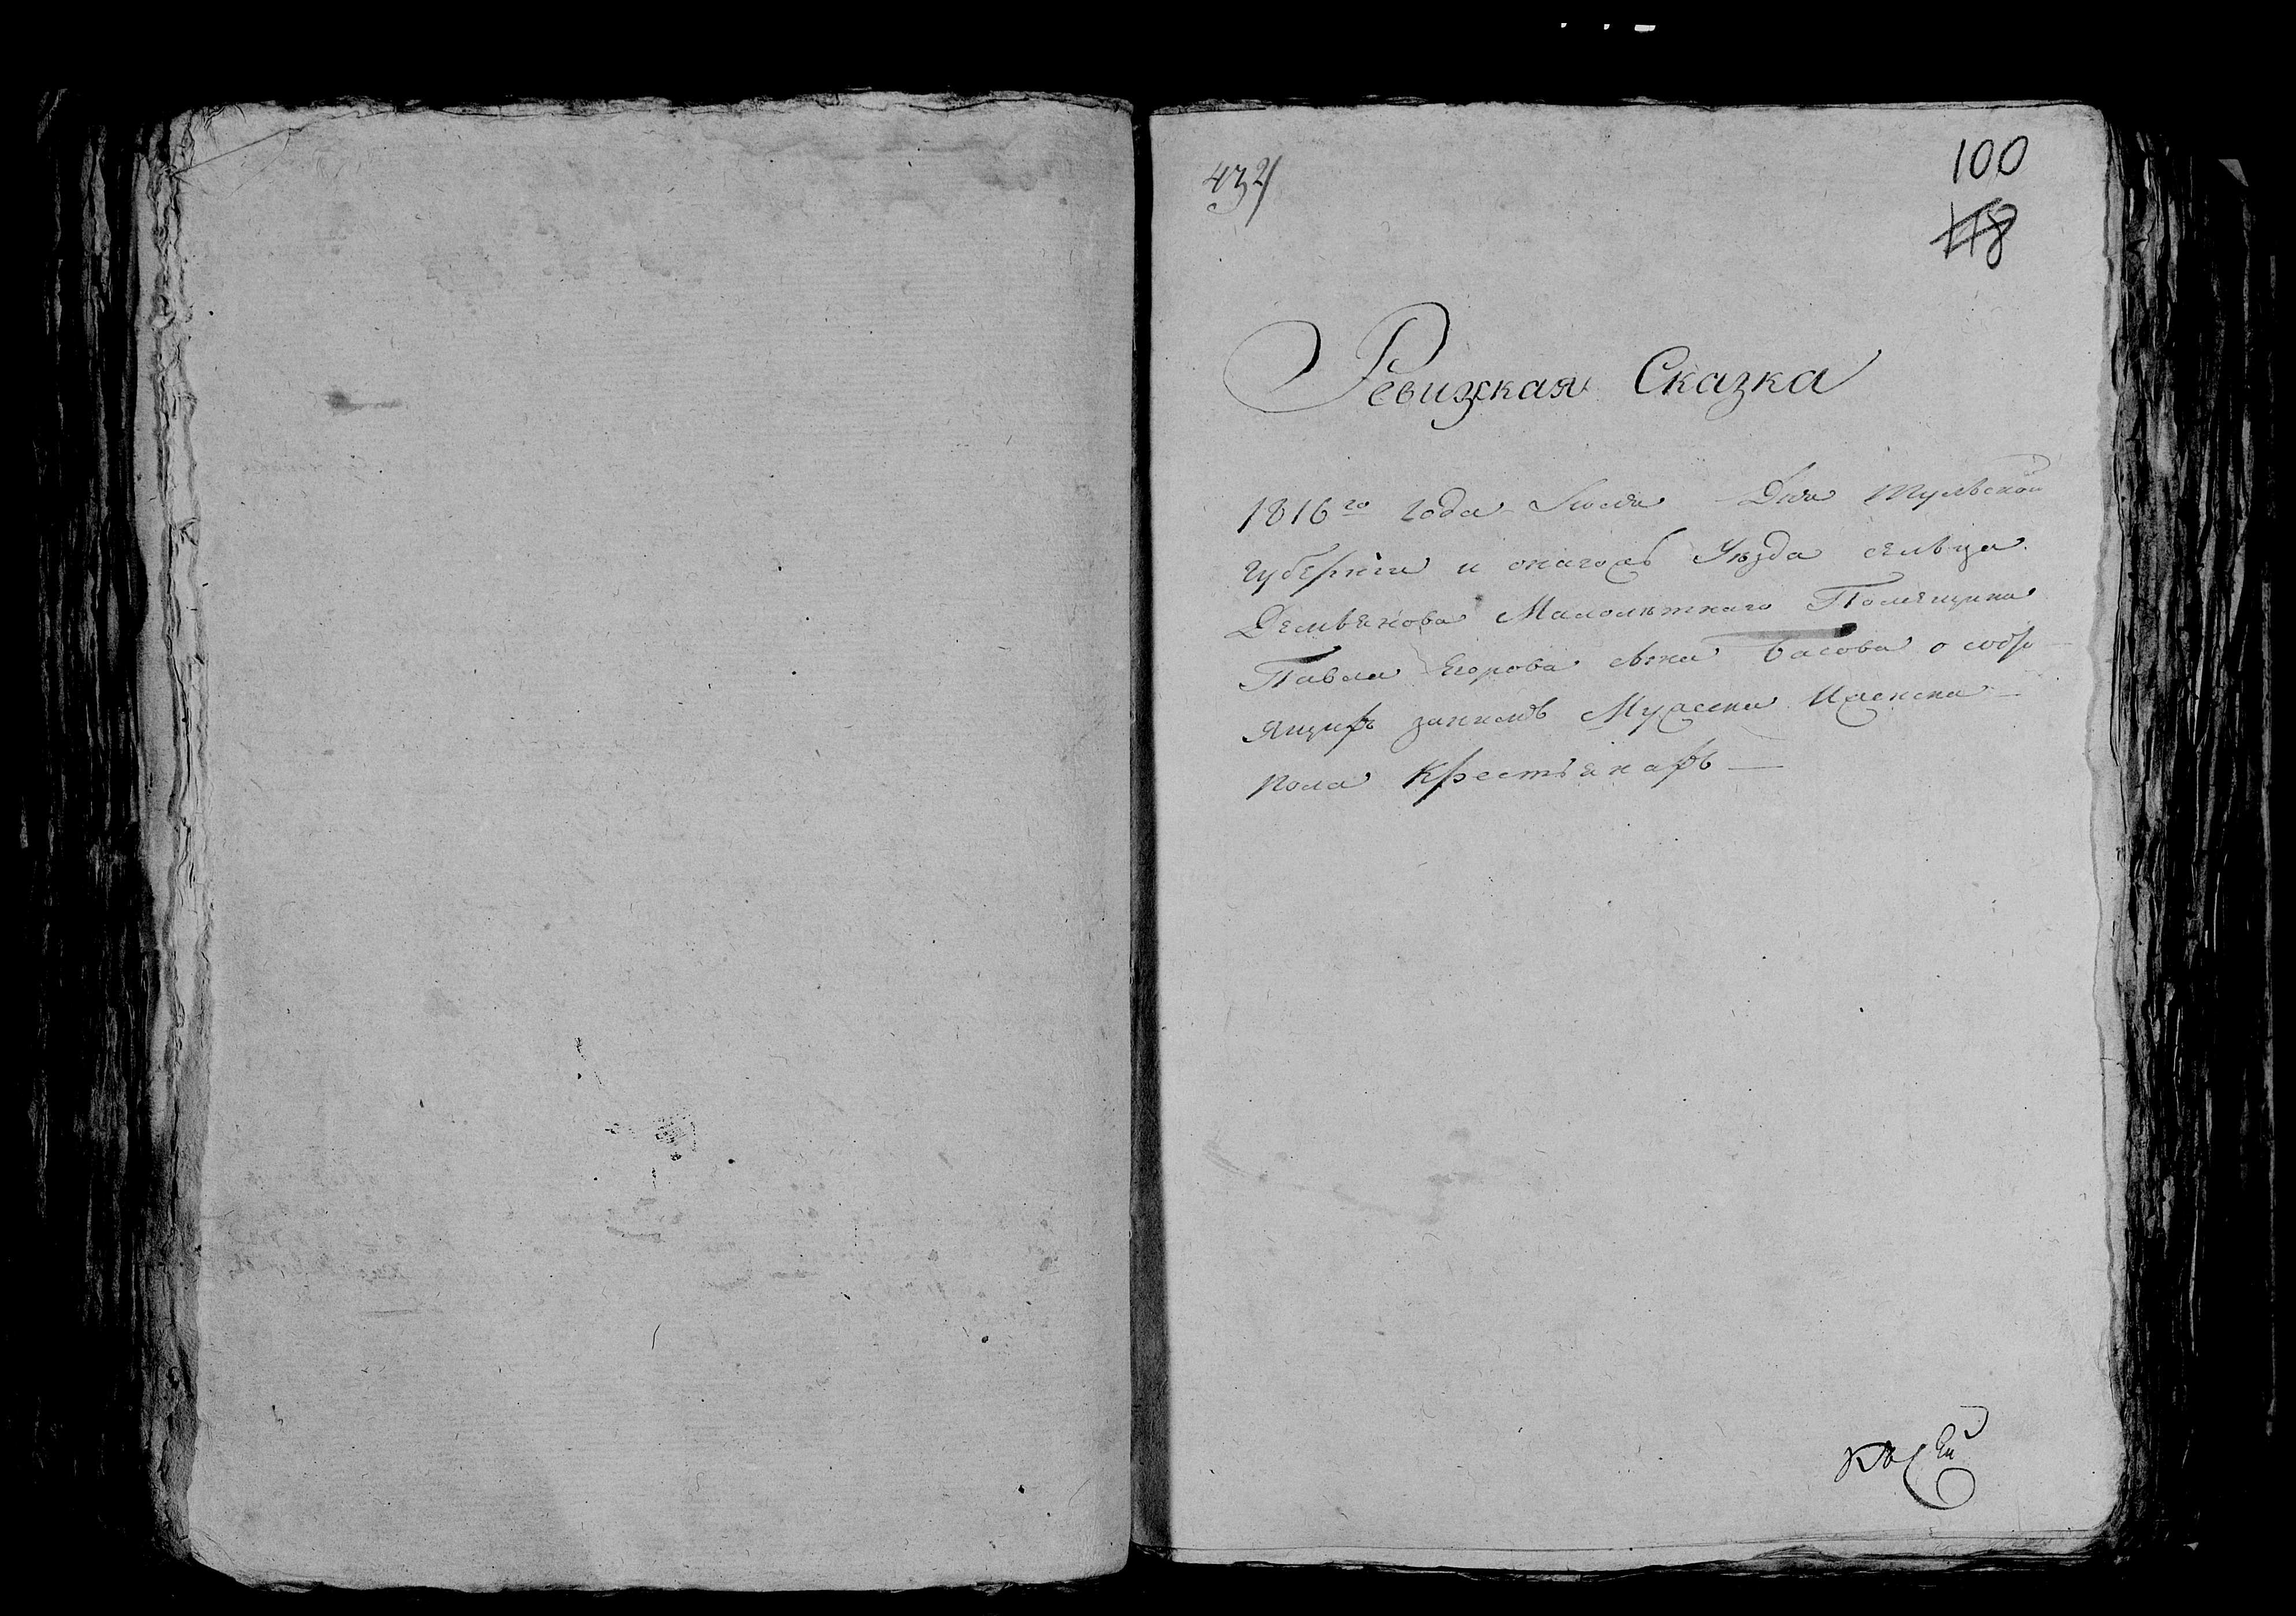 432
100
118
Ревизкая Сказка
1816го года Июля Дня Тульской
губернии и оногожъ Уезда сельца
Демьянова Малолѣтнаго Помещика
Павла Егорова сына Басова о состо
ящихъ занимъ Мужеска Иженска
пола Крестьянахъ